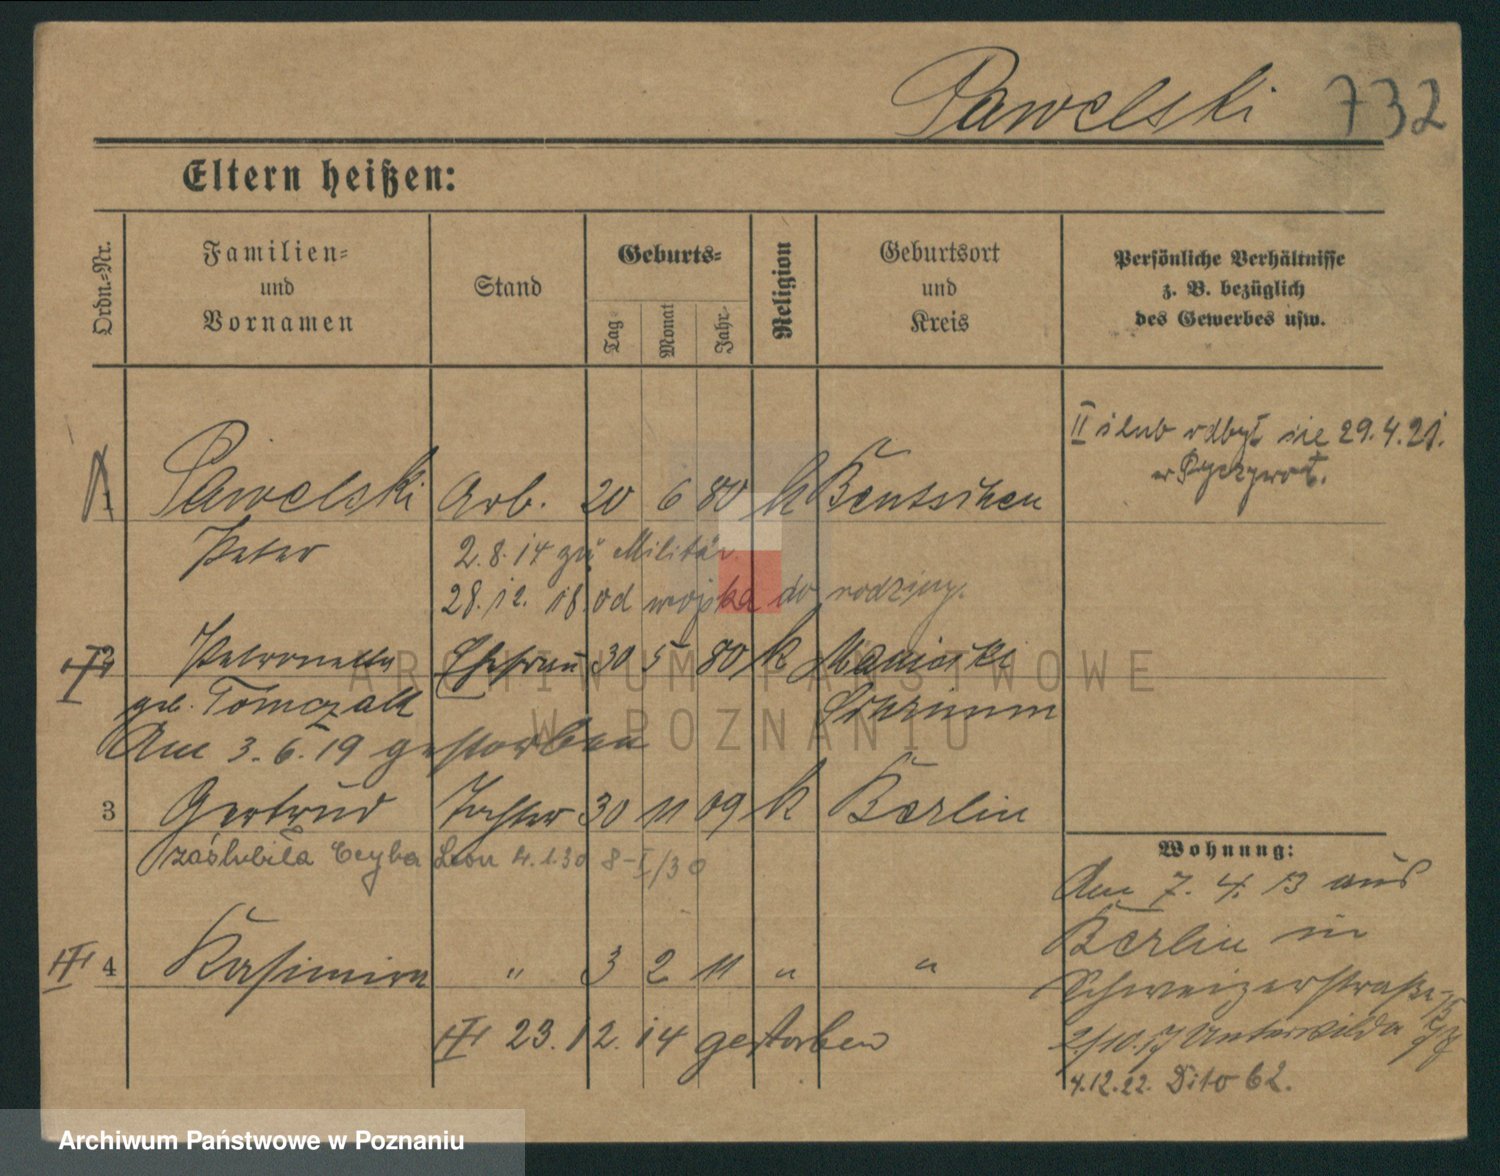 Pawelski 732
Eltern heißen:
Ordn.-Nr.
Familien-
und
Vornamen
Stand
Geburts-
Tag
Monat
Jahr-
Religion
Geburtsort
und
Kreis
Persönliche Verhältnisse
z. B. bezüglich
des Gewerbes usw.
II ślub odbył się 29.4.21.
w
1 Pawelski Arb. 20 6 80 k Bentschen
Peter 2.8.14 zu Militär.
28.12.18. od wojska do rodziny.
2 Petronella Ehefrau 30 5 80 k
geb. Tomczak Schrimm
Am 3.6.19 gestorben
3 Gertrud Tochter 30 11 09 k Berlin
zaślubiła Ceyba Leon 4.1.30 8-I/30
4 Kasimira " 3 2 11 " "
23.12.14 gestorben
Wohnung:
Am 7.4.13 aus
Berlin in
Schweizerstraße
2/10.17 Unterwilda
4.12.22. Dito 62.
ARCHIWUM PAŃSTWOWE
W POZNANIU
Archiwum Państwowe w Poznaniu